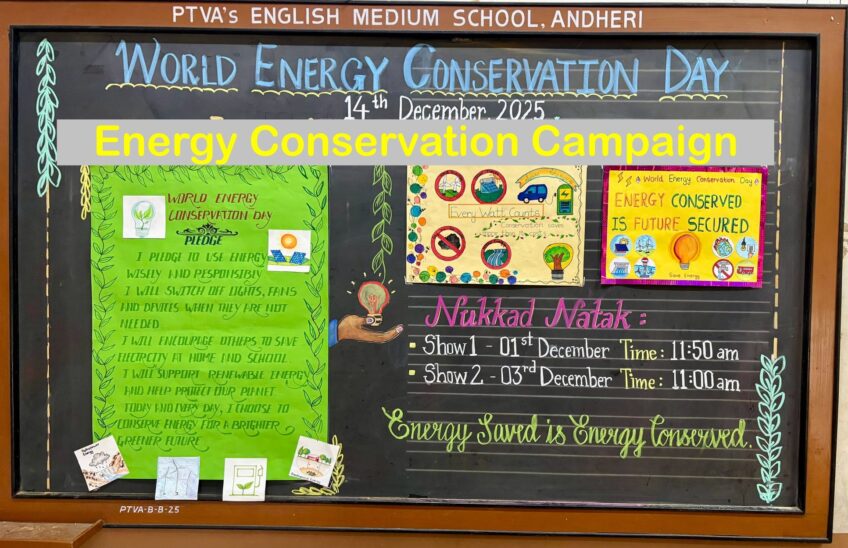 PTVA's ENGLISH MEDIUM SCHOOL, ANDHERI
WORLD ENERGY CONSERVATION DAY
14th December, 2025
Energy Conservation Campaign
WORLD ENERGY
CONSERVATION DAY
PLEDGE
I PLEDGE TO USE ENERGY
WISELY AND RESPONSIBLY
I WILL SWITCH OFF LIGHTS, FANS
AND DEVICES WHEN THEY ARE NOT
NEEDED
I WILL ENCOURAGE OTHERS TO SAVE
AT HOME AND SCHOOL
I WILL SUPPORT RENEWABLE ENERGY
AND HELP PROTECT OUR PLANET
TODAY AND EVERY DAY, I CHOOSE TO
CONSERVE ENERGY FOR A BRIGHTER
GREENER FUTURE
Every Watt Counts
Conservation saves
World Energy Conservation Day
ENERGY CONSERVED
IS FUTURE SECURED
Save Energy
Nukkad Natak :
Show 1 - 01st December Time : 11:50 am
Show 2 - 03rd December Time : 11:00 am
Energy Saved is Energy Conserved.
PTVA-B-B-25